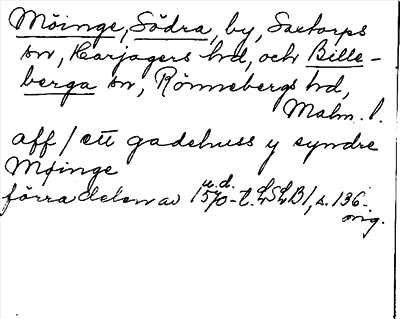 Möinge, Södra, by, Saxtorps
sn, Harjagers hd, och Bille-
berga sn, Rönnebergs hd,
Malm. l.
aff / ett gadehuss y syndre
Møinge
u. d.
förra delen av 1570-t. LSLB1, s. 136.
orig.